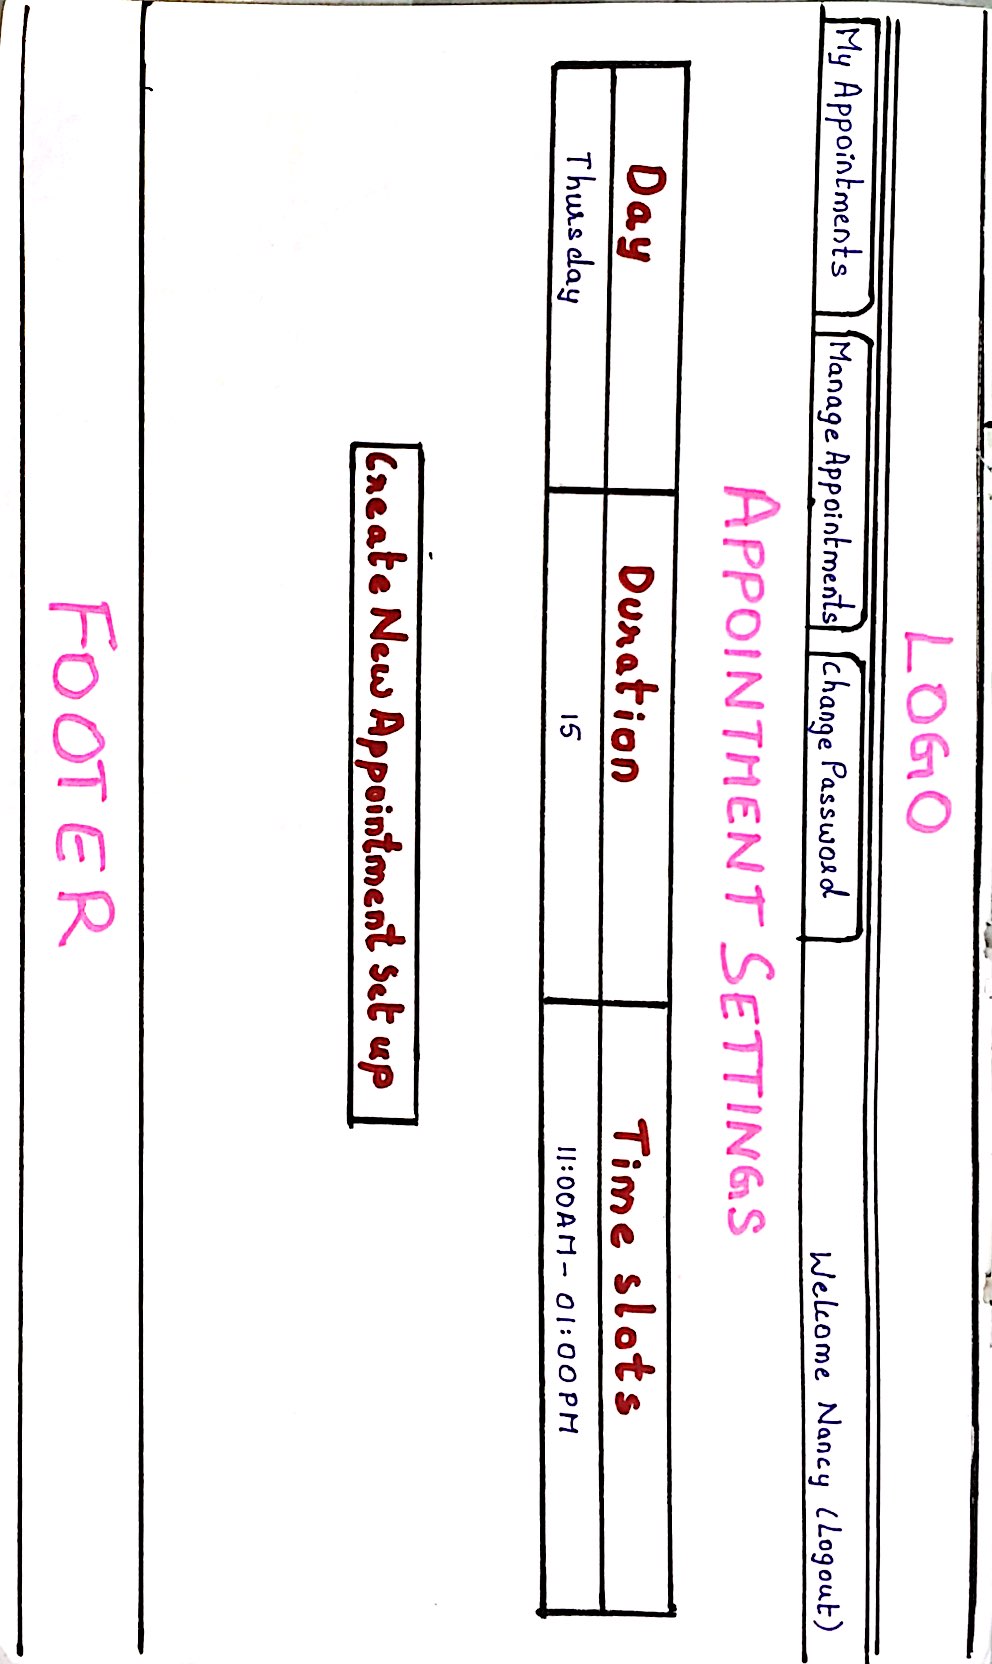 LOGO
My Appointments Manage Appointments Change Password Welcome Nancy (Logout)
APPOINTMENT SETTINGS
Day Duration Time slots
Thursday 15 11:00AM - 01:00PM
Create New Appointment Set up
FOOTER